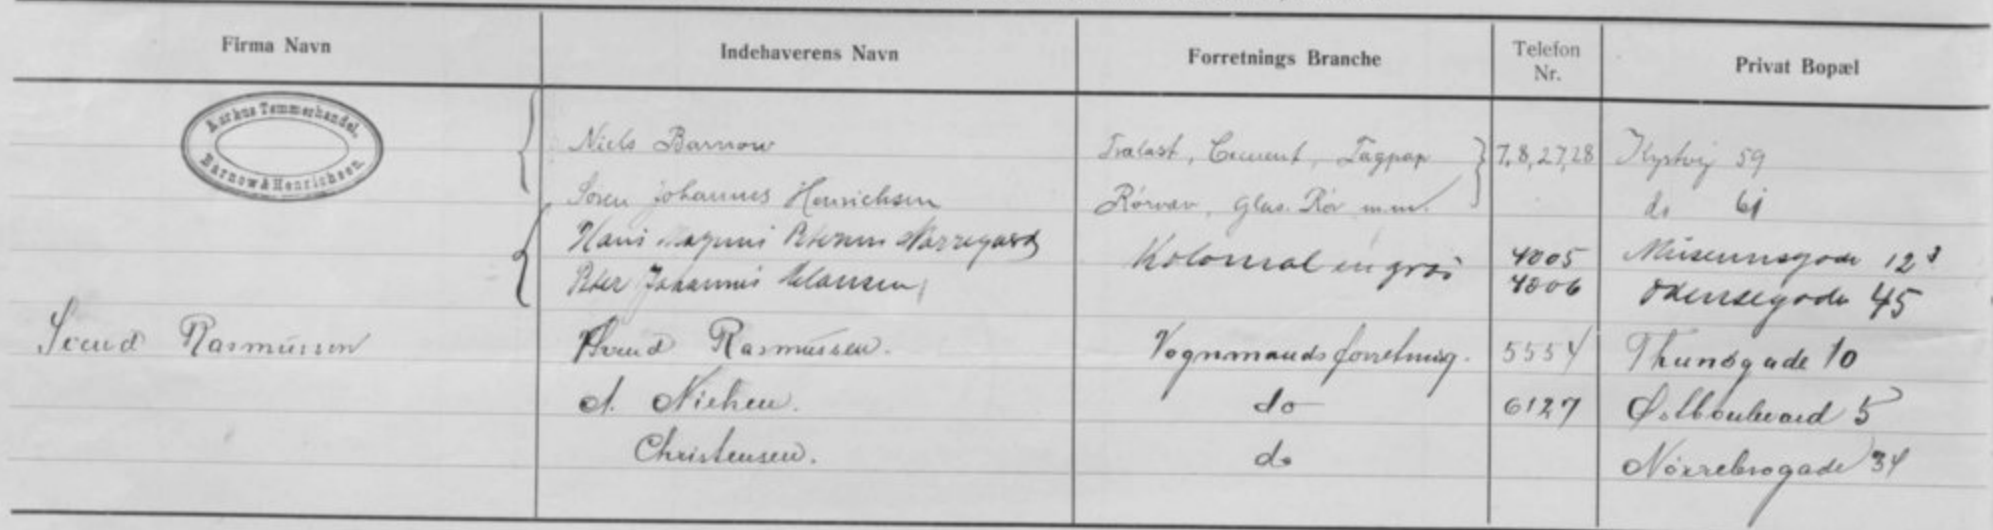 Firma Navn Indehaverens Navn Forretnings Branche Telefon Nr. Privat Bopæl
Aarhus Tømmerhandel, Barnow & Henrichsen.
Niels Barnow Trælast, Cement, Tagpap 7, 8, 27, 28 Kystvej 59
Søren Johannes Henrichsen Rörvæv, Glas. Rör m.m. do 61
Hans Magnus Petersen Nørregaard Kolonial en gros 4005 Museumsgade 12³
Peter Johannes Clausen 4006 Odensegade 45
Svend Rasmussen Svend Rasmussen. Vognmandsforretning. 5554 Thunøgade 10
A. Nielsen. do 6127 Østboulevard 5
Christensen. do Nørrebrogade 34